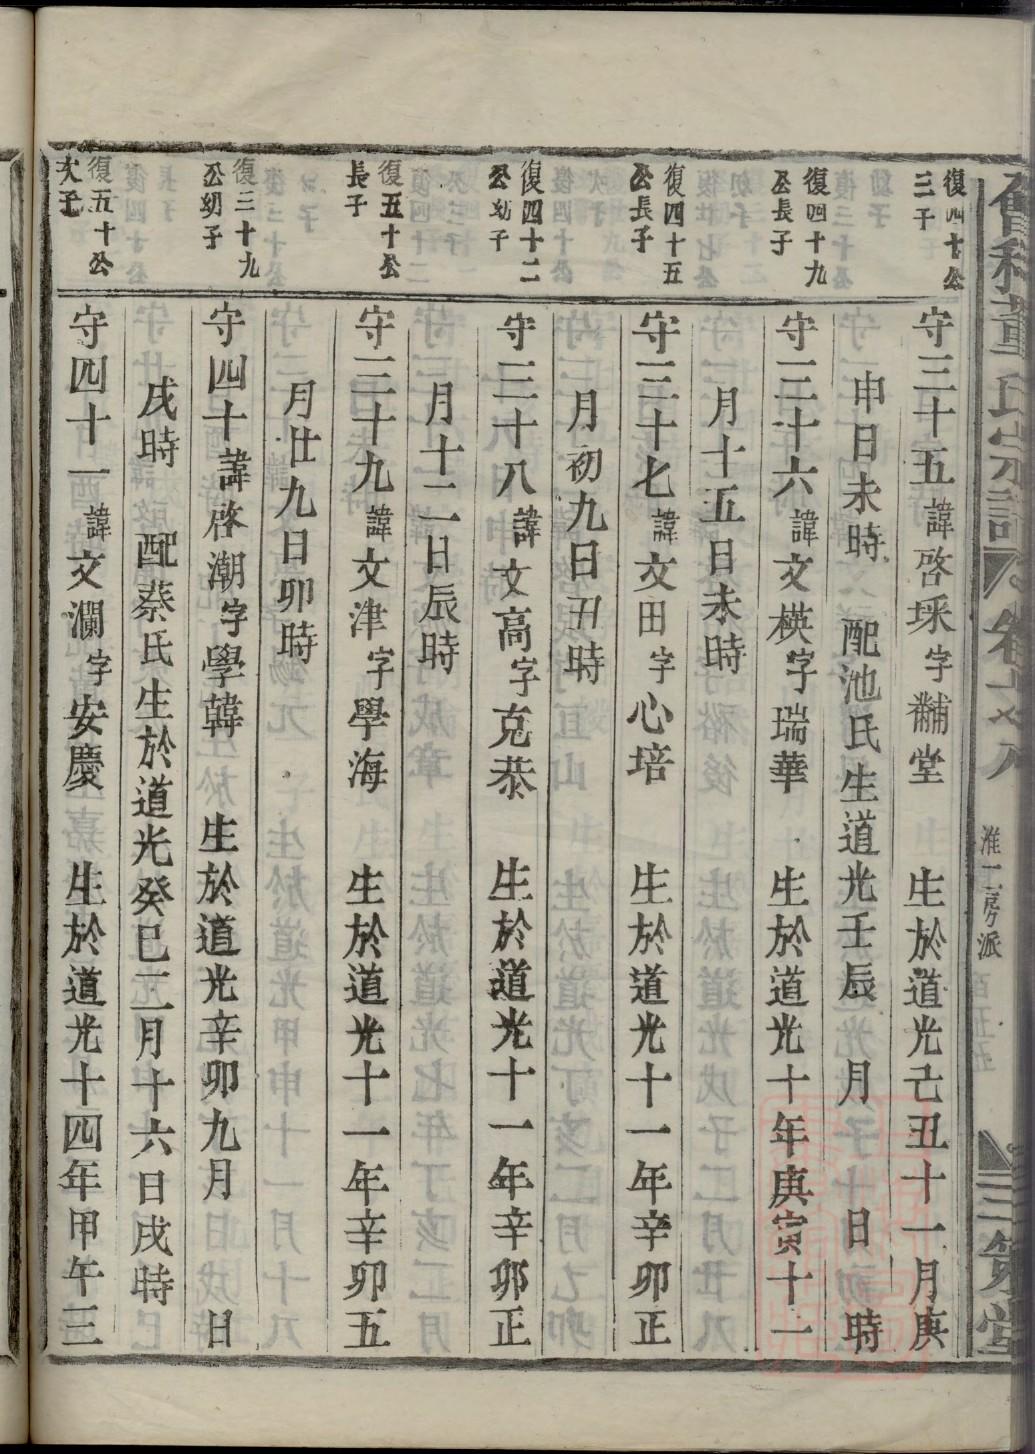 董氏宗譜 卷之八 淮一房派 三策堂
復四十公
三子
守三十五諱啓埰字黼堂 生於道光己丑十一月庚
申日未時 配池氏生道光壬辰 月 日 時
復四十九
公長子
守三十六諱文模字瑞華 生於道光十年庚寅十一
月十五日未時
復四十五
公長子
守三十七諱文田字心培 生於道光十一年辛卯正
月初九日丑時
復四十二
公幼子
守三十八諱文高字克恭 生於道光十一年辛卯正
月十二日辰時
復五十公
長子
守三十九諱文津字學海 生於道光十一年辛卯五
月廿九日卯時
復三十九
公幼子
守四十諱啓潮字學韓 生於道光辛卯九月 日
戌時 配蔡氏生於道光癸巳二月十六日戌時
復五十公
次子
守四十一諱文瀾字安慶 生於道光十四年甲午三